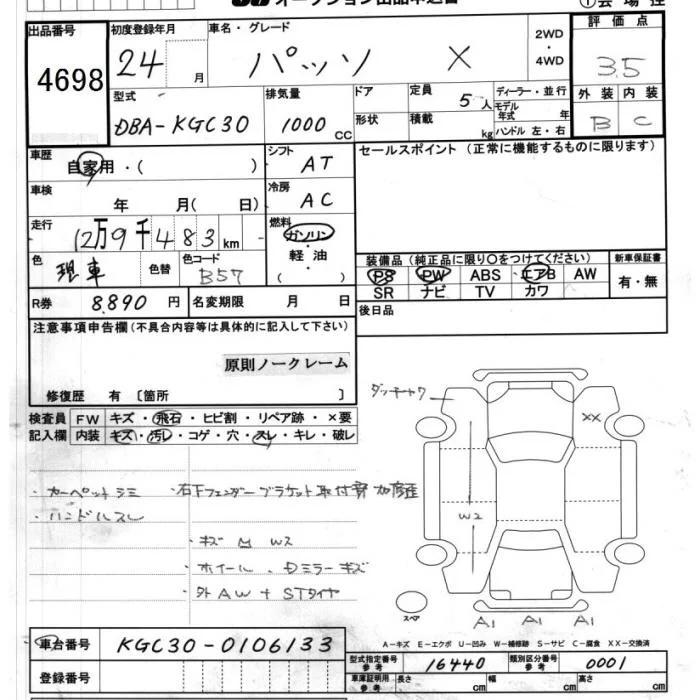 オークション出品申込書
出品番号 4698
初度登録年月 24 月
車名・グレード パッソ X
2WD・4WD
評価点 3.5
外装 B 内装 C
型式 DBA-KGC30
排気量 1000 cc
ドア形状
定員 5人
積載 kg
ディーラー・並行
モデル年式 年
ハンドル 左・右
車歴 自家用・( )
シフト AT
セールスポイント (正常に機能するものに限ります)
車検 年 月( 日)
冷房 AC
走行 12万9千483km
燃料 ガソリン 軽油 ( )
色 現車 色替
色コード B57
装備品 (純正品に限り○をつけてください)
新車保証書 有・無
PS PW ABS エアB AW
SR ナビ TV カワ
R券 8.890 円
名変期限 月 日
後日品
注意事項申告欄 (不具合内容等は具体的に記入して下さい)
原則ノークレーム
修復歴 有 [箇所 ]
検査員記入欄
FW キズ・飛石・ヒビ割・リペア跡・×要
内装 キズ・汚レ・コゲ・穴・スレ・キレ・破レ
・カーペットシミ
・ハンドルスレ
・右下フェンダーブラケット取付部 加修歪
・キズ M W2
・ホイール、Dミラーキズ
・外AW+STタイヤ
XX
W2
スペア
A1 A1 A1
A-キズ E-エクボ U-凹み W-補修跡 S-サビ C-腐食 XX-交換済
車台番号 KGC30-0106133
登録番号
型式指定番号参考 16440
類別区分番号参考 0001
車庫証明用参考 長さ cm 幅 cm 高さ cm